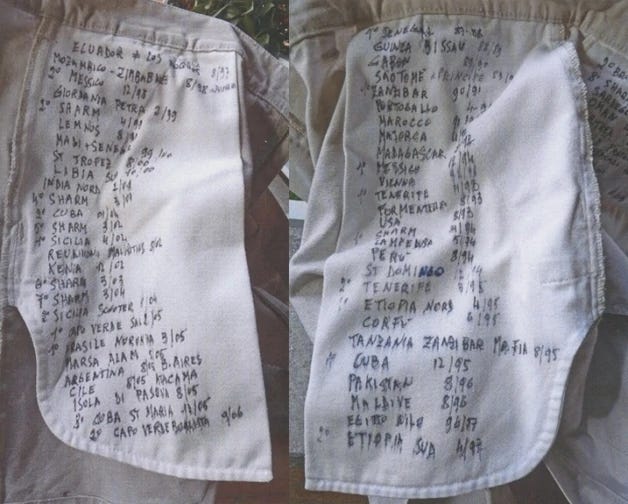 ECUADOR + LOS 8/97
MOZAMBICO - ZIMBABWE 8/98
2° MESSICO 12/98
GIORDANIA PETRA 2/99
2° SHARM 4/99
LEMNOS 8/99
MALI + SENEGAL 99/00
ST TROPEZ 8/00
LIBIA SUD 00
INDIA NORD 2/01
4° SHARM 3/01
2° CUBA 01/02
5° SHARM 3/02
SICILIA 4/02
REUNION MAURITIUS 8/02
KENIA 12/02
6° SHARM 3/03
7° SHARM 3/04
2° SICILIA SCOOTER 4/04
1° CAPO VERDE SAL 2/05
BRASILE NORONIA 3/05
MARSA ALAM 5/05
ARGENTINA 8/05 B. AIRES
CILE 8/05 ATACAMA
ISOLA DI PASQUA 8/05
3° CUBA ST MARIA 12/05
2° CAPO VERDE BOAVISTA 9/06
1° SENEGAL 87-88
GUINEA BISSAU 88/89
GABON 89
SAOTOME + PRINCIPE
ZANZIBAR 90/91
PORTOGALLO 4-91
MAROCCO
MAJORCA
MADAGASCAR
1° MESSICO
VIENNA
1° TENERIFE 93
FORMENTERA
USA 8/93
SHARM 4/94
LAMPEDUSA 5/94
PERU' 8/94
ST DOMINGO
2° TENERIFE 95
1° ETIOPIA NORD 4/95
CORFU' 6/95
TANZANIA ZANZIBAR MAFIA 8/95
1° CUBA 12/95
PAKISTAN 8/96
MALDIVE 8/96
EGITTO NILO 96/97
2° ETIOPIA SUD 4/97